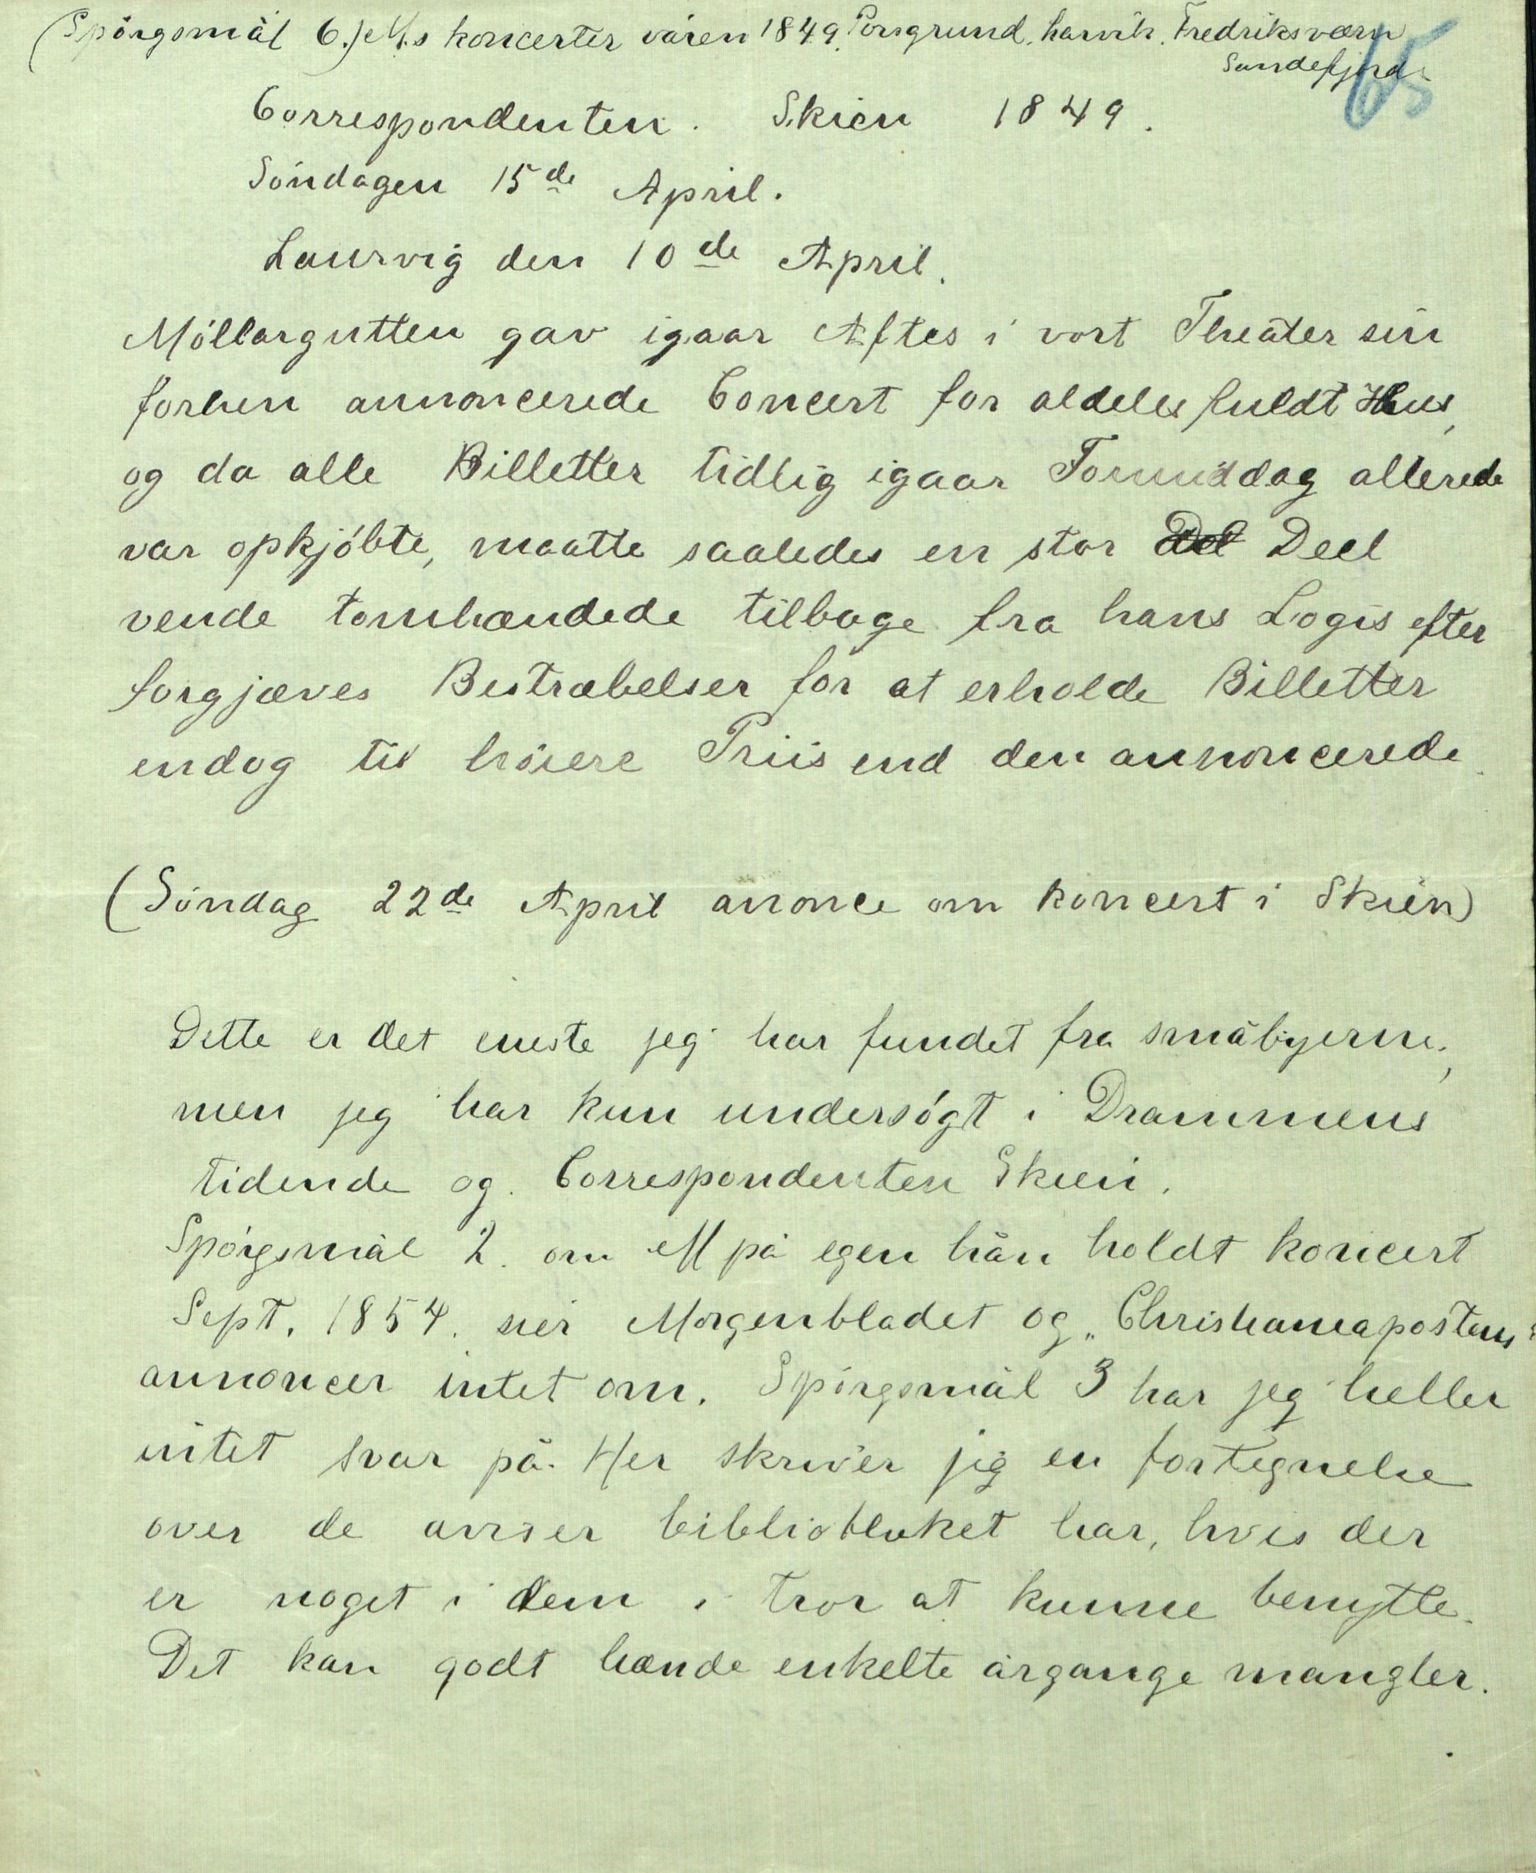 (Spørgsmål 6.) M.s koncerter våren 1849. Porsgrund. Larvik. Fredriksværn
Sandefjord.
65
Correspondenten. Skien 1849.
Søndagen 15de April.
Laurvig den 10de April.
Møllargutten gav igaar Aftes i vort Theater sin
forhen annoncerede Concert for aldeles fuldt Hus,
og da alle Billetter tidlig igaar Formiddag allerede
var opkjøbte, maatte saaledes en stor Deel
vende tomhændede tilbage fra hans Logis efter
forgjæves Bestræbelser for at erholde Billetter
endog til høiere Priis end den annoncerede.
(Søndag 22de April anonce om koncert i Skien)
Dette er det eneste jeg har fundet fra småbyerne,
men jeg har kun undersøgt i Drammens
tidende og Correspondenten Skien.
Spørgsmål 2. om M på egen hån holdt koncert
Sept. 1854. sier Morgenbladet og „Christianiapostens"
annoncer intet om. Spørgsmål 3 har jeg heller
intet svar på. Her skriver jeg en fortegnelse
over de aviser bibliotheket har, hvis der
er noget i dem i tror at kunne benytte.
Det kan godt hænde enkelte årgange mangler.